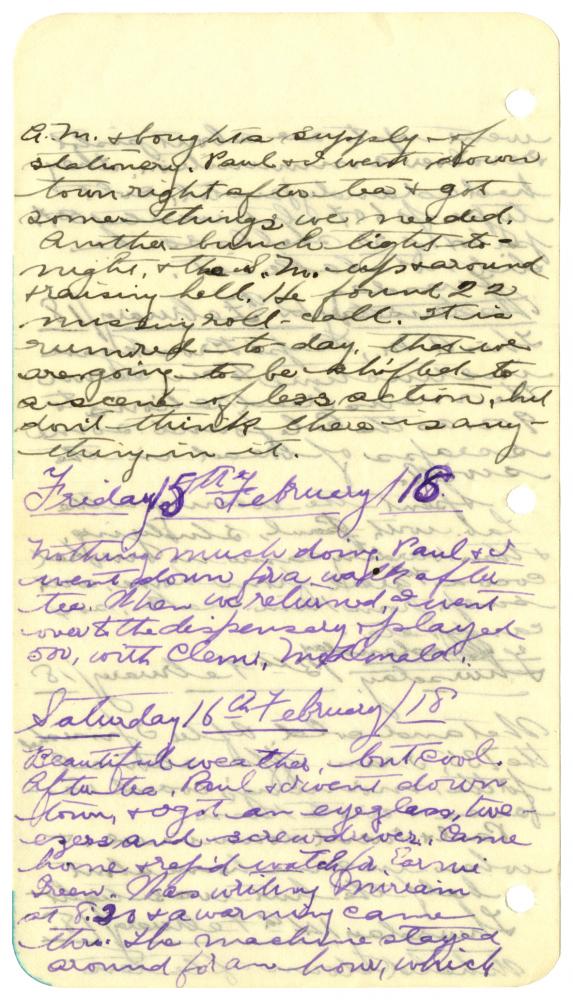 A.M. & bought a supply of
stationery. Paul & I went down
town right after tea & got
some things we needed.
Another bunch light to-
night, & the S.M. up & around
& raising hell. He found 22
missing roll-call. It is
rumired to day, that we
are going to be shifted to
a scene of less action, but
don't think there is any-
thing in it.
Friday 15th February/18
Nothing much doing. Paul & I
went down for a walk after
tea. When we returned, I went
over to the dispensary & played
500, with Clem, McDonald.
Saturday 16th February/18
Beautiful weather, but cool.
After tea, Paul & I went down
town, & got an eyeglass, twe-
ezers and screwdriver. Came
home & rep'd watch for Earnie
Green. Was writing Miriam
at 8.20 & a warning came
thro. The machine stayed
around for an hour, which